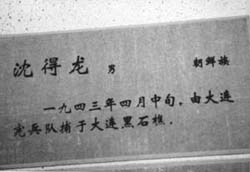 沈得龙 男 朝鲜族
一九四三年四月中旬,由大连
宪兵队捕于大连黑石礁.